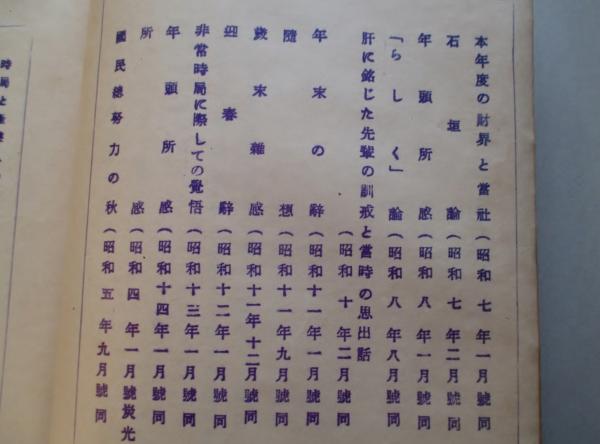 本年度の財界と當社（昭和七年一月號同
石垣論（昭和七年二月號同
年頭所感（昭和八年一月號同
「らしく」論（昭和八年八月號同
肝に銘じた先輩の訓戒と當時の思出話
（昭和十年二月號同
年末の辭（昭和十一年一月號同
隨想（昭和十一年九月號同
歲末雜感（昭和十一年十二月號同
迎春辭（昭和十二年一月號同
非常時局に際しての覺悟（昭和十三年一月號同
年頭所感（昭和十四年一月號同
所感（昭和四年一月號炭光
國民總努力の秋（昭和五年九月號同
時局と